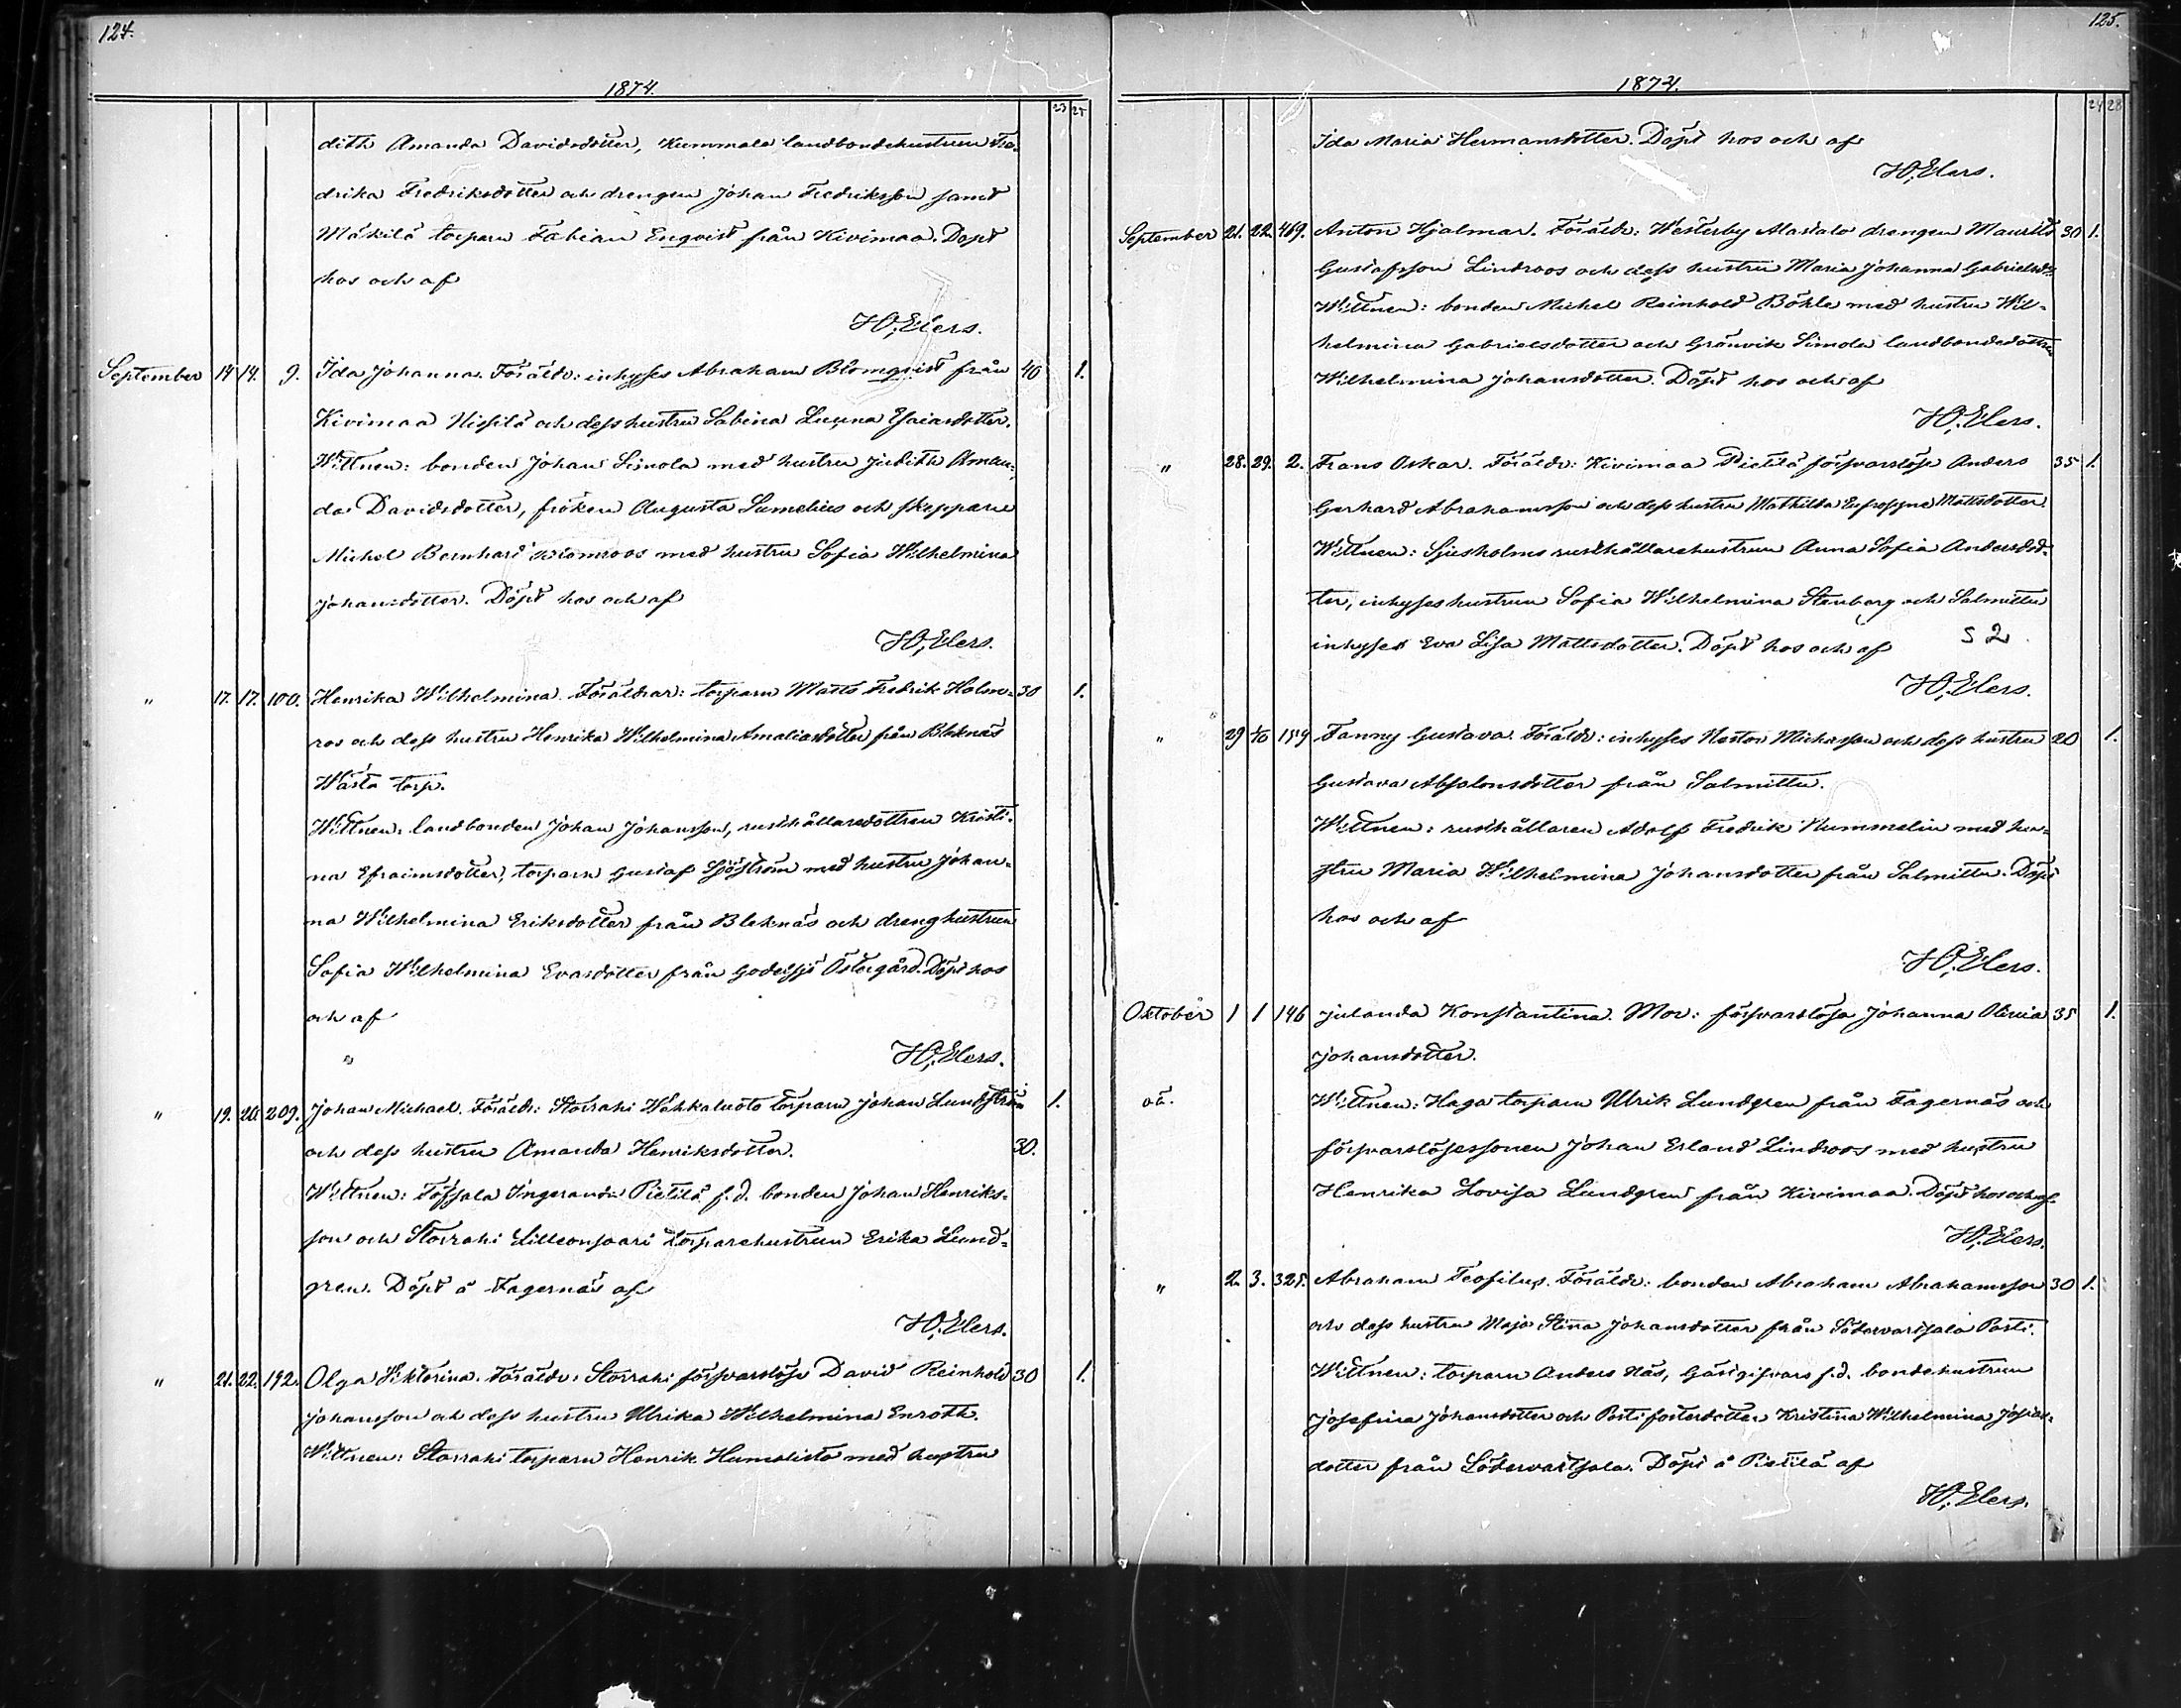 124.
1874.
23 25
dith Amanda Davidsdotter, Kummala landbondehustrun Fre-
drika Fredriksdotter och drengen Johan Fredriksson samt
Mäkilä torparn Fabian Enqvist från Kivimaa. Döpt
hos och af
H. Elers.
September 14 14. 9. Ida Johanna. Föräldr: inhyses Abraham Blomqvist från 40 1.
Kivimaa Nissilä och dess hustru Sabina Esaiasdotter.
Wittnen: bonden Johan Simola med hustru Judith Aman-
da Davidsdotter, fröken Augusta Sumelius och skepparn
Michel Bernhard Blomroos med hustru Sofia Wilhelmina
Johansdotter. Döpt hos och af
H. Elers.
" 17. 17. 100. Henrika Wilhelmina. Föräldrar: torparn Matts Fredrik Holm- 30 1.
ros och dess hustru Henrika Wilhelmina Amaliasdotter från Bleknäs
Wästä torp.
Wittnen: landbonden Johan Johansson, rusthållaredottren Kristi-
na Efraimsdotter, torparn Gustaf Sjöström med hustru Johan-
na Wilhelmina Eriksdotter från Bleknäs och drenghustrun
Sofia Wilhelmina Evasdotter från Östergård. Döpt hos
och af
" H. Elers.
" 19. 20. 209. Johan Michael. Föräldr: Storrahi Wähkaluoto torparn Johan Lundström 1.
och dess hustru Amanda Henriksdotter. 30.
Wittnen: Tofsala Ingeranda Pietilä f.d. bonden Johan Henriks-
son och Storrahi torparehustrun Erika Lund-
gren. Döpt å Fagernäs af
H. Elers.
" 21. 22. 192. Olga Wiktorina. Föräldr: Storrahi försvarslöse David Reinhold 30 1.
Johansson och dess hustru Ulrika Wilhelmina Enroth.
Wittnen: Storrahi torparn Henrik Humalisto med hustru
125.
1874.
24 28
Ida Maria Hermansdotter. Döpt hos och af
H. Elers.
September 21. 22. 469. Anton Hjalmar. Föräldr: Westerby Alastalo drengen Maurits 30 1.
Gustafsson Lindroos och dess hustru Maria Johanna Gabrielsd:r
Wittnen: bonden Michel Reinhold Böhle med hustru Wil-
helmina Gabrielsdotter och Grönvik Simola landbondedottren
Wilhelmina Johansdotter. Döpt hos och af
H. Elers.
" 28. 29. 2. Frans Oskar. Föräldr: Kivimaa Pietilä försvarslöse Anders 35 1.
Gerhard Abrahamsson och dess hustru Mathilda Eufrosyne Mattsdotter.
Wittnen: Sjusholms rusthållarehustrun Anna Sofia Andersdot-
ter, inhyseshustrun Sofia Wilhelmina Stenberg och Salmittu
inhyses Eva Lisa Mattsdotter. Döpt hos och af S 2
H. Elers.
" 29 4/10 159 Fanny Gustava. Föräldr: inhyses Nestor Michelsson och dess hustru 20 1.
Gustava Absolonsdotter från Salmittu.
Wittnen: rusthållaren Adolf Fredrik Nummelin med hu-
stru Maria Wilhelmina Johansdotter från Salmittu. Döpt
hos och af
H. Elers.
Oktober 1 1 146 Julanda Konstantina. Mor: försvarslösa Johanna Olivia 35 1.
Johansdotter.
oä. Wittnen: Haga torparn Ulrik Lundgren från Fagernäs och
försvarslösesonen Johan Erland Lindroos med hustru
Henrika Lovisa Lundgren från Kivimaa. Döpt hos och af
H. Elers.
" 2. 3. 325. Abraham Teofilus. Föräldr: bonden Abraham Abrahamsson 30 1.
och dess hustru Maja Stina Johansdotter från Södervartsala Posti.
Wittnen: torparn Anders Näs, Gästgifvars f.d. bondehustrun
Josefina Johansdotter och Posti fosterdottren Kristina Wilhelmina Josias-
dotter från Södervartsala. Döpt å Pietilä af
H. Elers.